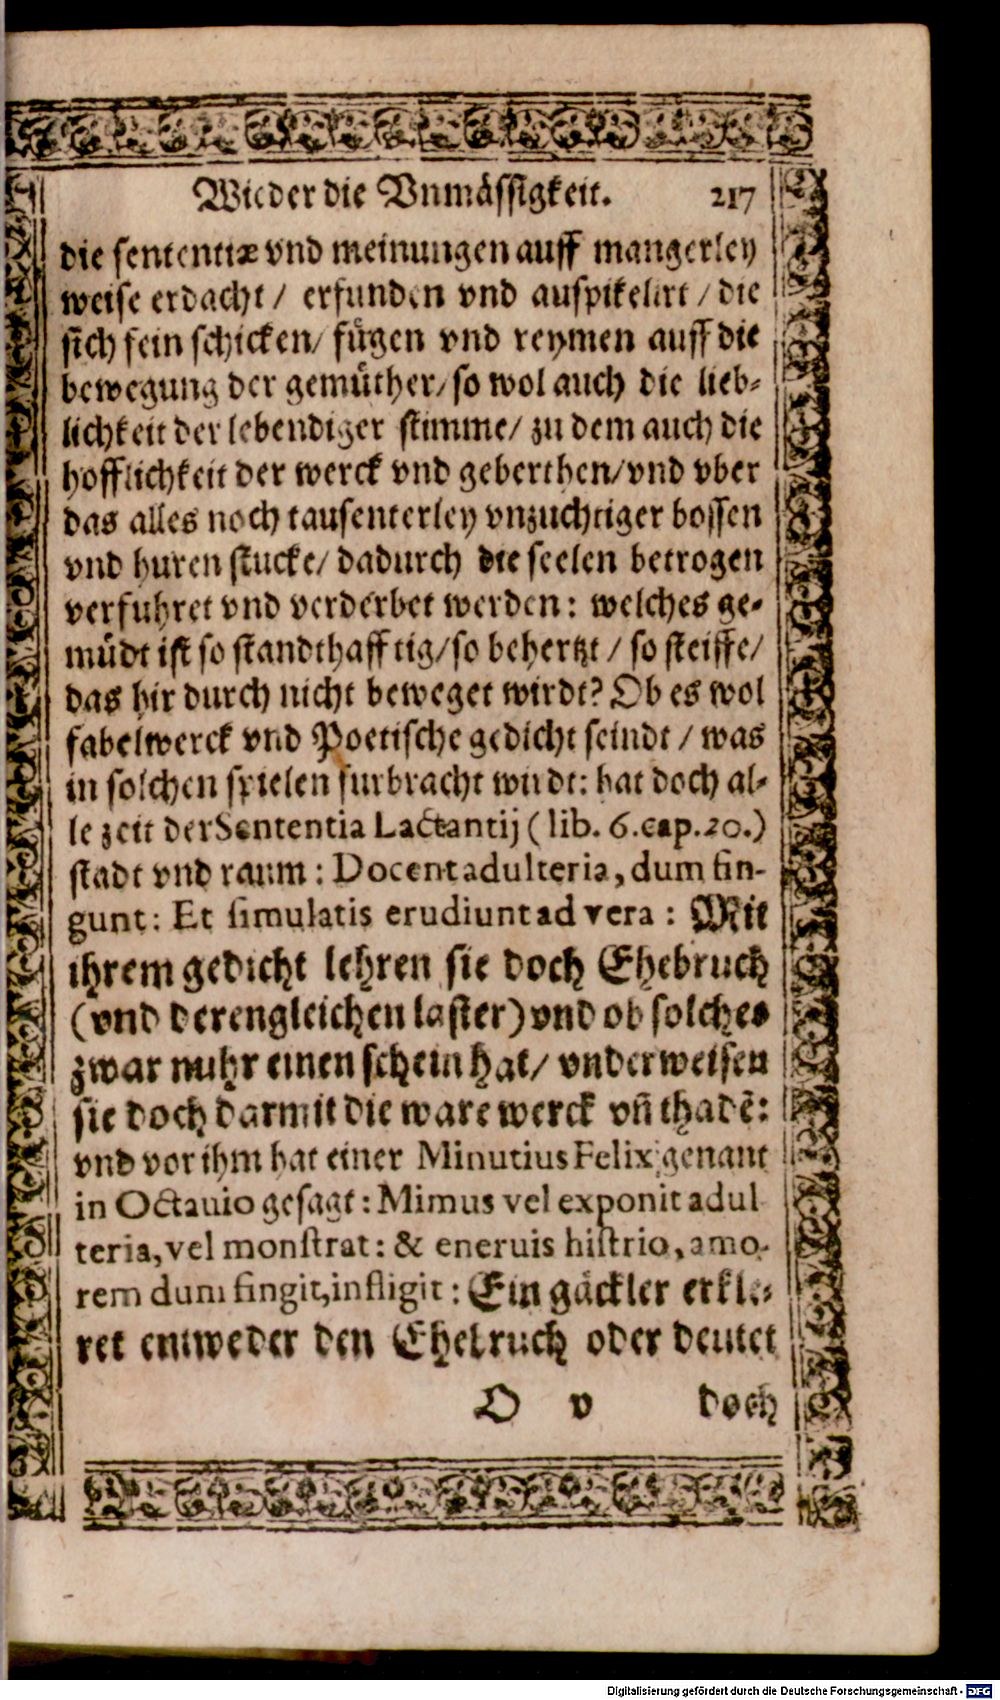 Wieder die Vnmässigkeit. 217
die sententiæ vnd meinungen auff mangerley
weise erdacht / erfunden vnd auspikelirt / die
sich fein schicken / fügen vnd reymen auff die
bewegung der gemüther / so wol auch die lieb-
lichkeit der lebendiger stimme / zu dem auch die
hofflichkeit der werck vnd geberthen / vnd vber
das alles noch tausenterley vnzuchtiger bossen
vnd huren stucke / dadurch die seelen betrogen
verfuhret vnd verderbet werden: welches ge-
müdt ist so standthafftig / so behertzt / so steiffe /
das hir durch nicht beweget wirdt? Ob es wol
fabelwerck vnd Poetische gedicht seindt / was
in solchen spielen furbracht wirdt: hat doch al-
le zeit der Sententia Lactantij (lib. 6. cap. 20.)
stadt vnd raum: Docent adulteria, dum fin-
gunt: Et simulatis erudiunt ad vera: Mit
ihrem gedicht lehren sie doch Ehebruch
(vnd derengleichen laster) vnd ob solches
zwar nuhr einen schein hat / vnderweisen
sie doch darmit die ware werck vñ thadẽ:
vnd vor ihm hat einer Minutius Felix genant
in Octauio gesagt: Mimus vel exponit adul
teria, vel monstrat: & eneruis histrio, amo-
rem dum fingit, infligit: Ein gäckler erkle-
ret entweder den Ehebruch oder deutet
O v doch
Digitalisierung gefördert durch die Deutsche Forschungsgemeinschaft - DFG